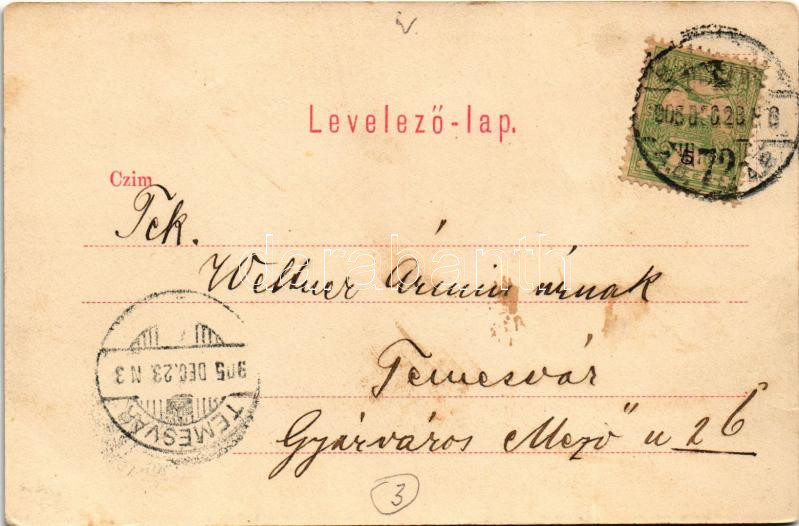 Levelező-lap.
Czim
Tek.
Weltner Ármin úrnak
Temesvár
Gyárváros Mező u 26
905 DEC. 23. N 3
TEMESVÁR
905 DEC 23
72
3
darabanth